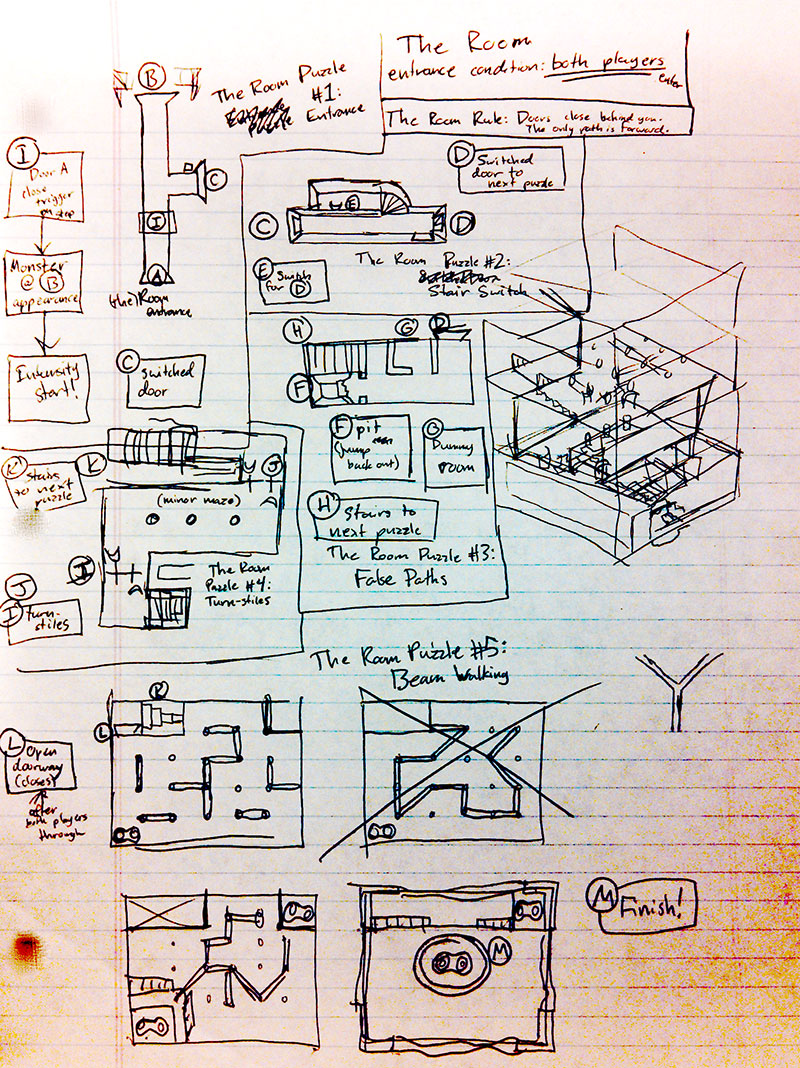 The Room
entrance condition: both players
enter
The Room Rule: Doors close behind you.
The only path is forward.
The Room Puzzle
#1:
Puzzle Entrance
B
C
I
A
(the) Room
entrance
I
Door A
close
trigger
on step
Monster
@ B
appearance
Intensity
Start!
C switched
door
D Switched
door to
next puzzle
C
E
D
The Room Puzzle #2:
Stair Switch
E Switch
for D
H
G
D
F
F pit
(jump
back out)
G
Dummy
room
H Stairs to
next puzzle
The Room Puzzle #3:
False Paths
K Stairs
to next
puzzle
K
J
(minor maze)
I
The Room
Puzzle #4:
Turn-stiles
J
I Turn-
stiles
The Room Puzzle #5:
Beam Walking
K
L
L Open
doorway
(closes)
after
both players
through
M
M Finish!